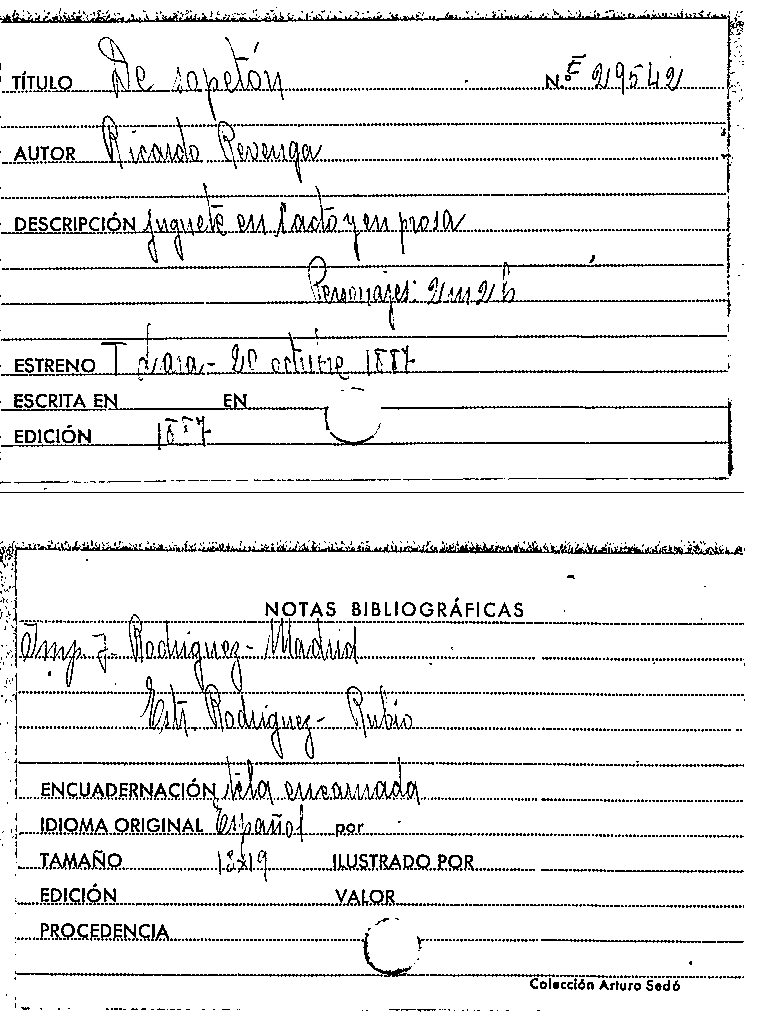 TÍTULO De sopetón N.º E 29542
AUTOR Ricardo Revenga
DESCRIPCIÓN juguete en 1 acto y en prosa
Personajes: 2 m 2 h
ESTRENO T Lara - 20 octubre 1887
ESCRITA EN EN
EDICIÓN 1887
NOTAS BIBLIOGRÁFICAS
Imp J. Rodriguez - Madrid
Estr. Rodriguez - Rubio
ENCUADERNACIÓN tela encarnada
IDIOMA ORIGINAL Español por
TAMAÑO 13x19 ILUSTRADO POR
EDICIÓN VALOR
PROCEDENCIA
Colección Arturo Sedó